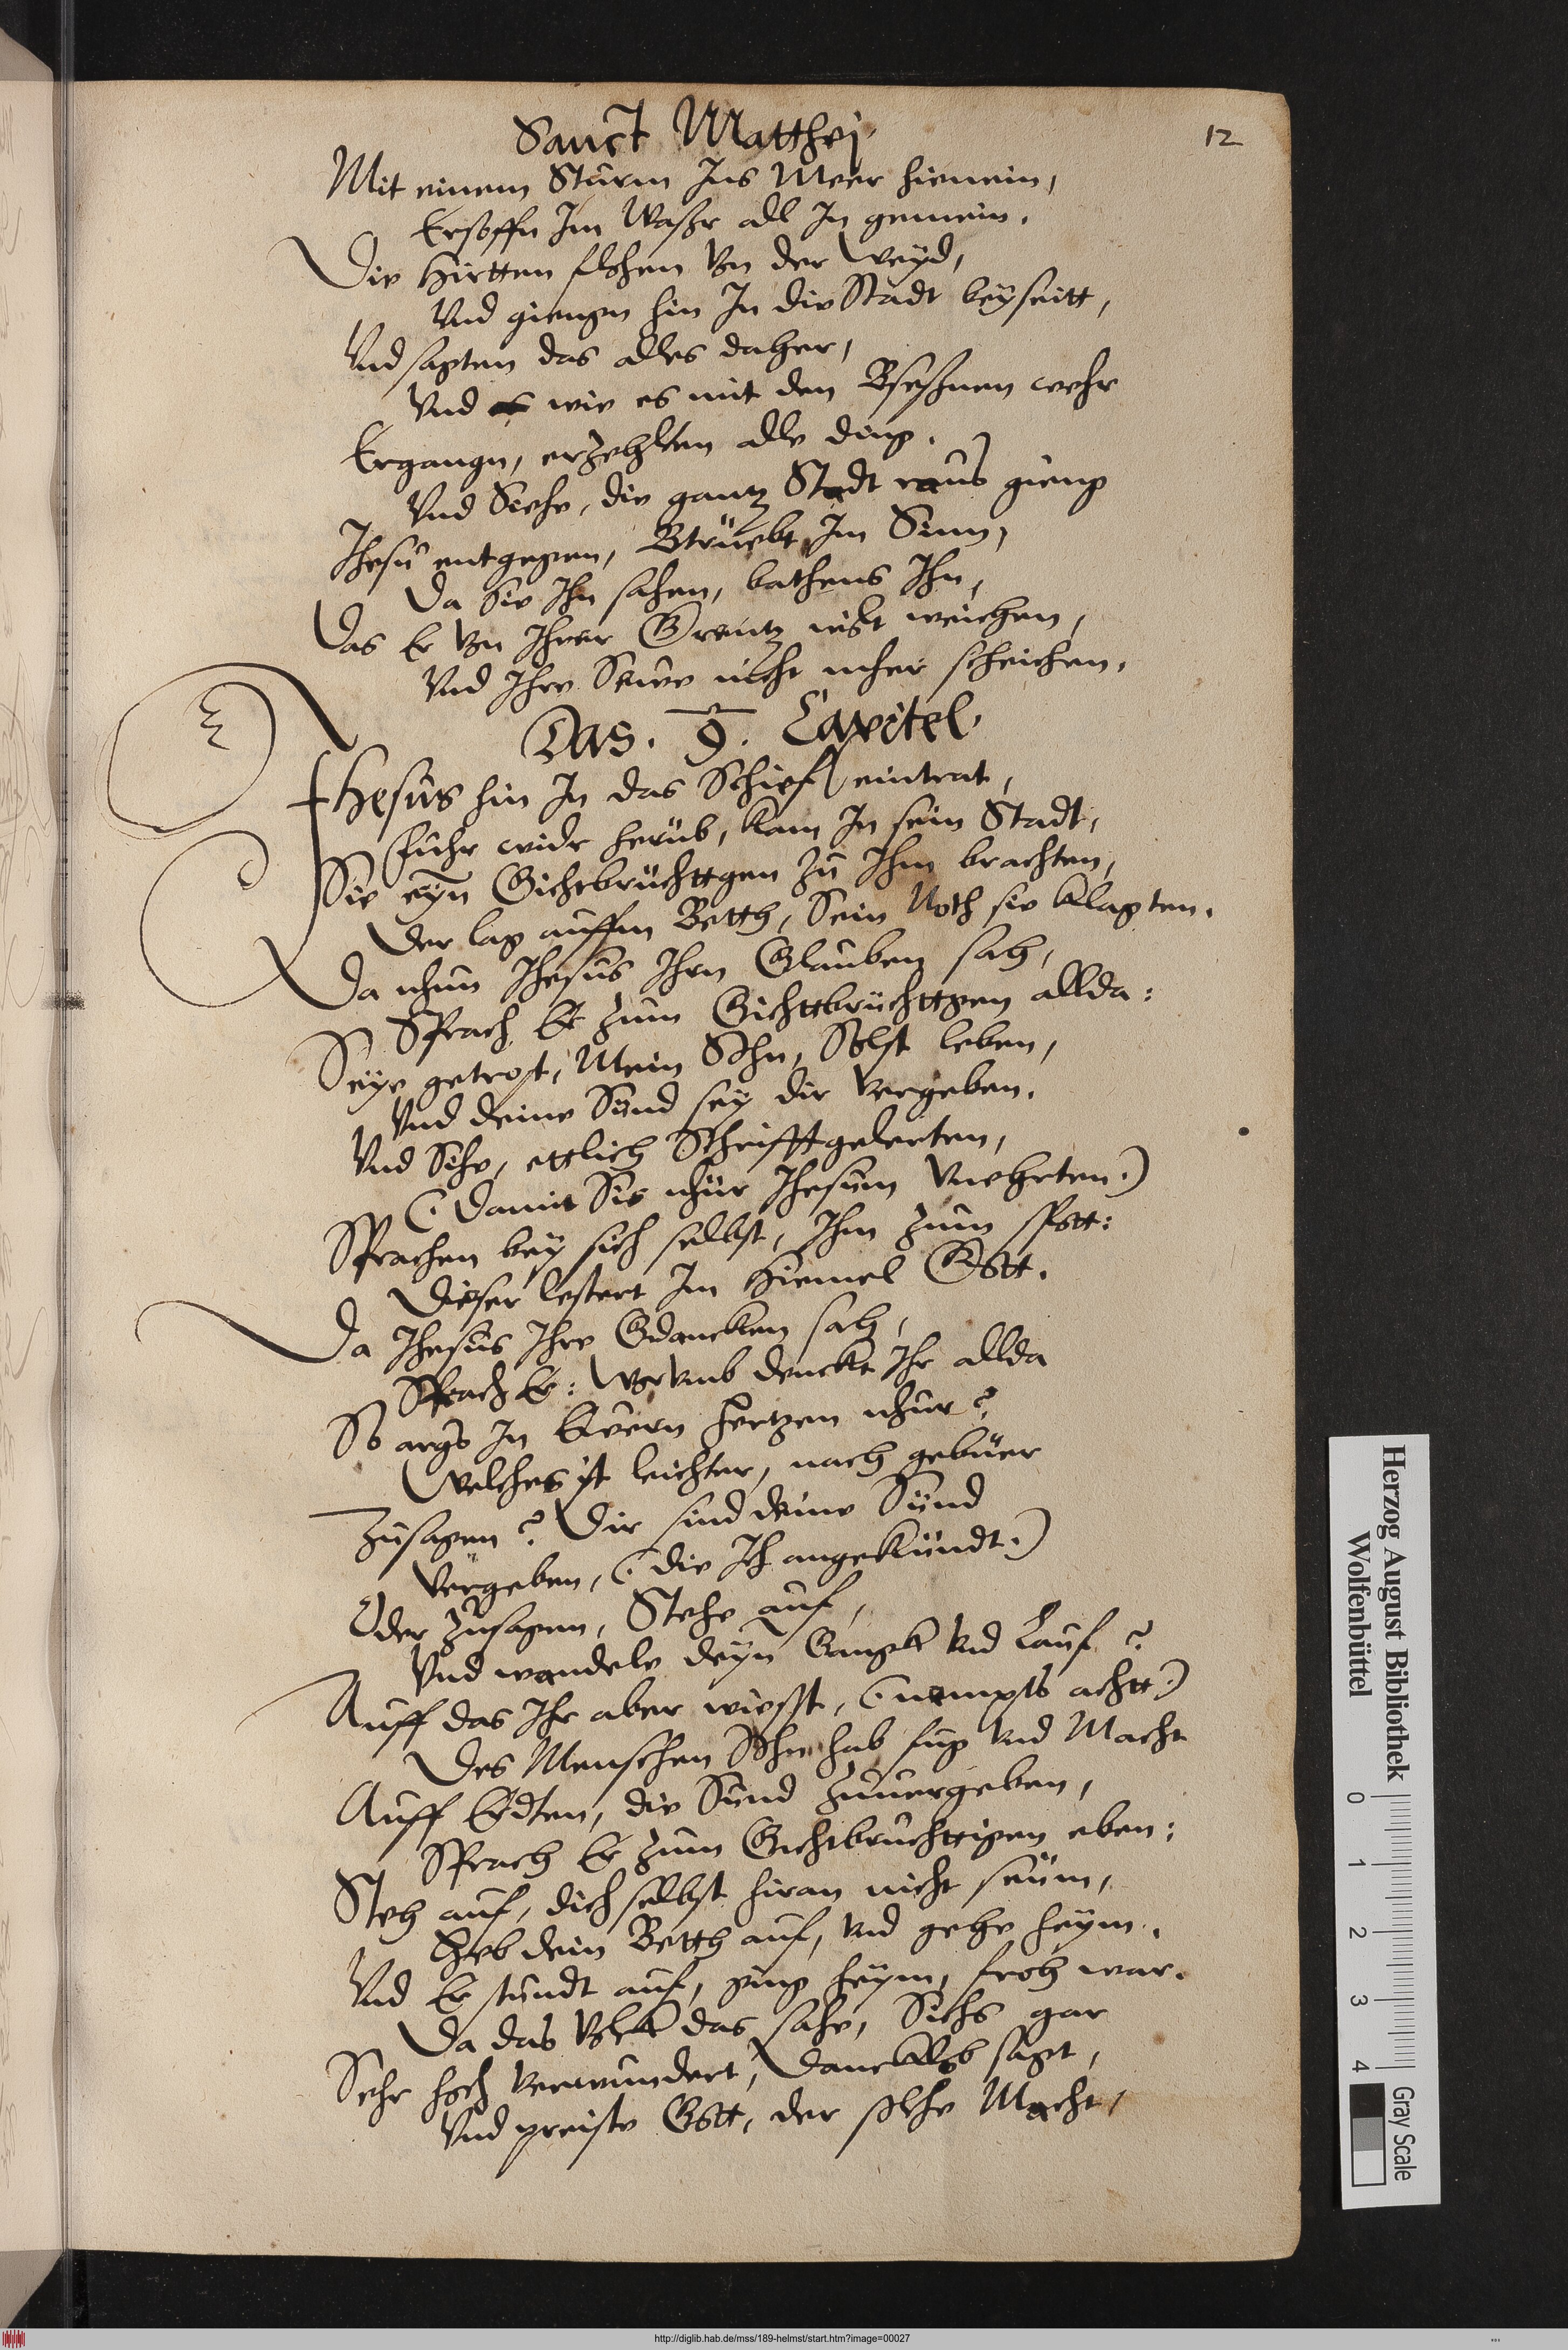 Sanct Matthej
12
Mit einem Sturm Ins Meer hienein,
Ersoffn Im Waßr all In gemein.
Die Hirtten flohen Vn der Weyd,
Vnd giengn hin In die Stadt beyseitt,
Vnd sagten das alles daher,
Vnd wie es mit den Bseßnen wehr
Ergangn, erzehlten alle ding.
Vnd Siehe, die gantz Stadt raus gieng
Jhesu entgegen, Btruebt Im Sinn,
Da Sie Ihn sahen, bathens Ihn,
Das Er Vn Ihrer Grentz wißt weichen,
Vnd Ihre Sewe nicht mher scheichen.
Das. 9. Capitel.
Jhesus hin In das Schieff eintrat,
Fuhr widr herüb, kam In sein Stadt,
Sie eyn Gichtbrüchttgen zu Ihm brachten,
Der lag auffm Betth, Sein Noth sie klagten.
Da nhun Jhesus Ihrn Glauben sah,
Sprach Er zum Gichttbrüchttgen allda:
Seye getrost, Mein Sohn, Solst leben,
Vnd deine Sünd sey dir Vergeben.
Vnd Sihe, ettlich Schrifftgelerten,
(Damit Sie nhur Jhesum Vnehrten.)
Sprachen bey sich selbst, Ihm zum spott:
Dieser lestert Im Hiemel Gott.
Da Jhesus Ihre Gdancken sah,
Sprach Er: Worumb denckt Ihr allda
So args In Ewern hertzen nhur?
Welches ist leichter, nach gebüer
Zusagen? Dir sind deine Sünd
Vergeben, (die Ich angekündt.)
Oder Zusagen, Stehe auf,
Vnd wandele deyn Gangk Vnd Lauf?
Auff das Ihr aber wiesst, (nempts acht.)
Des Menschen Sohn hab fug Vnd Macht
Auff Erdten, die Sünd zuuergeben,
Sprach Er zum Gichtbruchttigen eben:
Steh auf, dich selbst hiran nicht seüm,
Heb dein Betth auf, Vnd gehe heym.
Vnd Er stundt auf, ging heym, froh war.
Da das Volck das sahe, Sichs gar
Sehr hoch Verwundert, Danck Lob sagt,
Vnd preiste Gott, der solche Macht,
Herzog August Bibliothek
Wolfenbüttel
0 1 2 3 4
Gray Scale
http://diglib.hab.de/mss/189-helmst/start.htm?image=00027